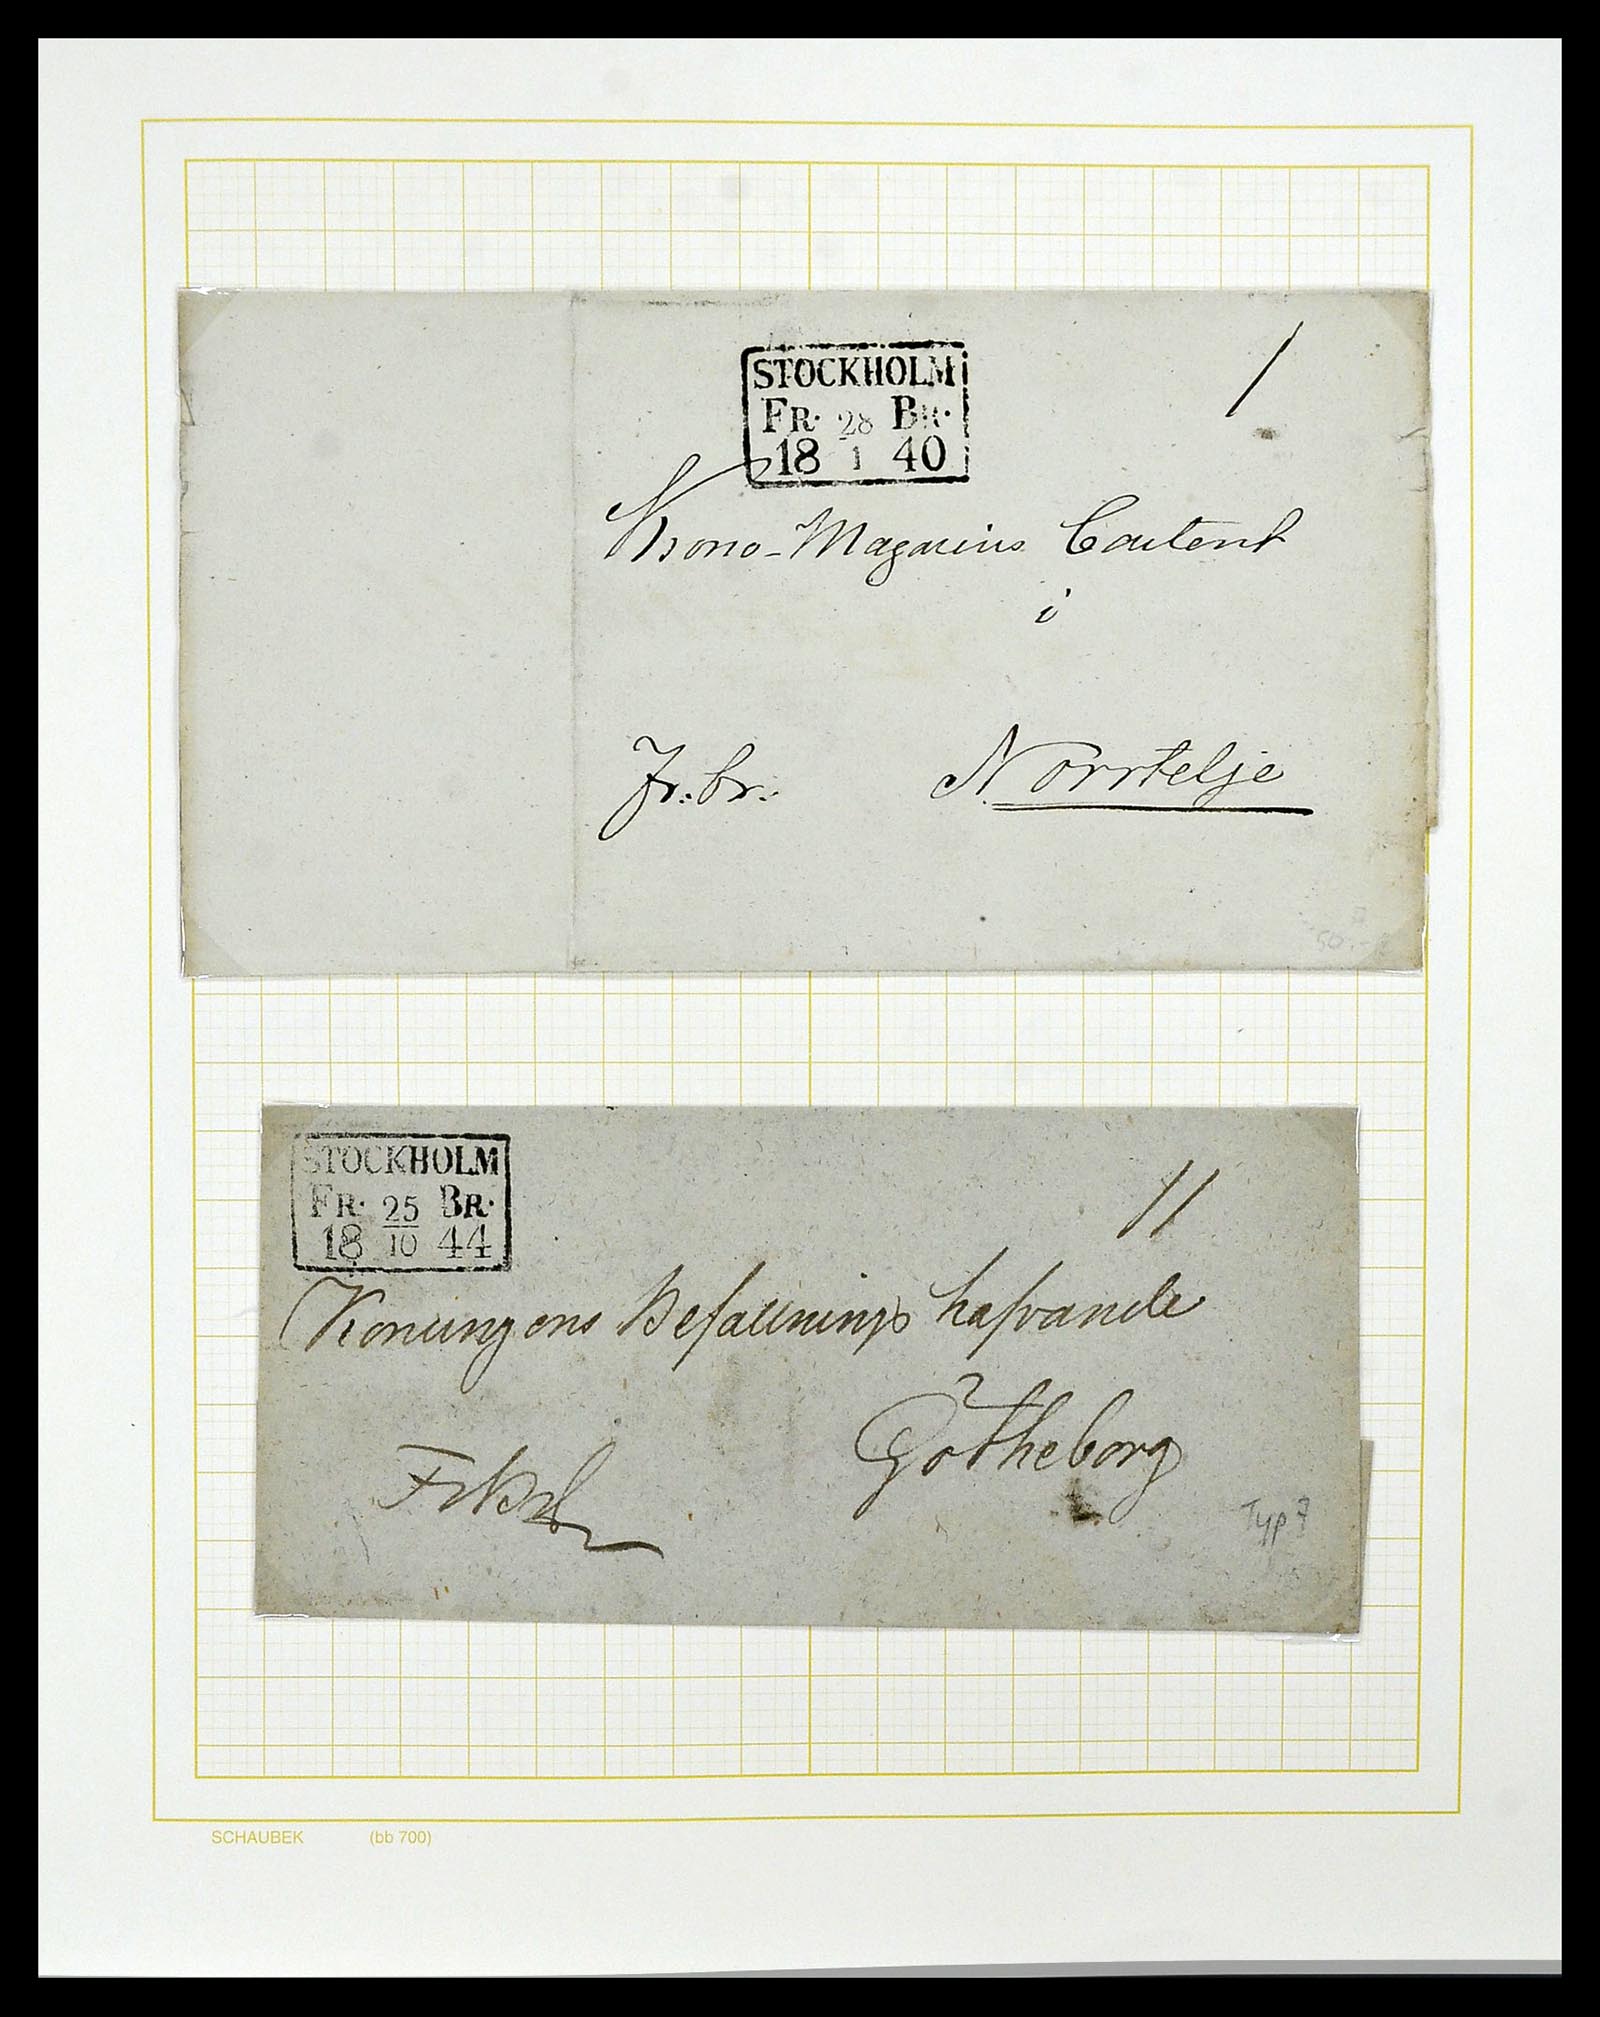 STOCKHOLM
FR. 28 BR.
18 1 40
/
Krono-Magasins Content
i
Fr.br. Norrtelje
50.-
STOCKHOLM
FR. 25 BR.
18 10 44
//
Konungens Befallningshafvande
Götheborg
Typ 7
SCHAUBEK (bb 700)